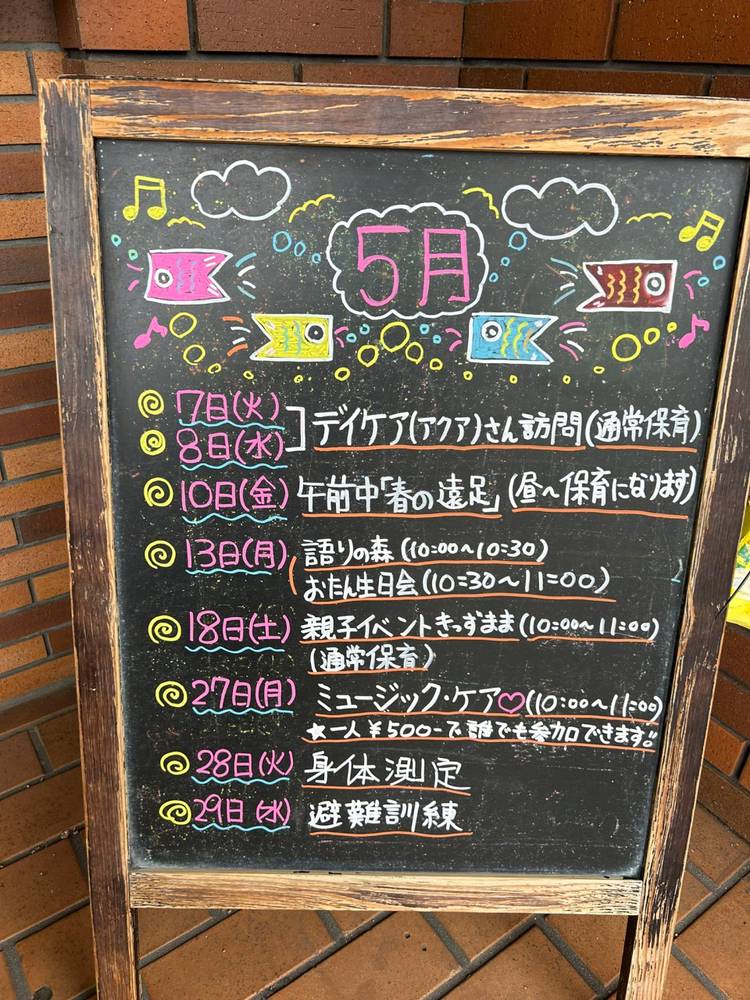 5月
7日(火)
8日(水)
デイケア(アクア)さん訪問(通常保育)
10日(金) 午前中「春の遠足」(昼〜保育になります)
13日(月) 語りの森(10:00〜10:30)
おたん生日会(10:30〜11:00)
18日(土) 親子イベントきっずまま(10:00〜11:00)
(通常保育)
27日(月) ミュージック・ケア♡(10:00〜11:00)
★一人¥500-で誰でも参加できます!!
28日(火) 身体測定
29日(水) 避難訓練